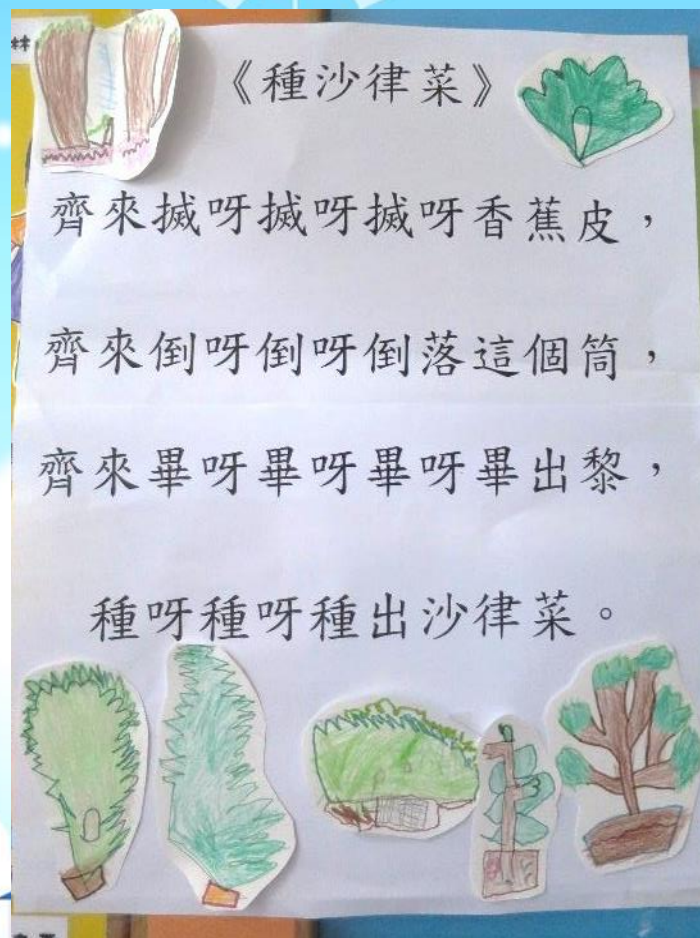 《種沙律菜》
齊來搣呀搣呀搣呀香蕉皮，
齊來倒呀倒呀倒落這個筒，
齊來畢呀畢呀畢呀畢出黎，
種呀種呀種出沙律菜。